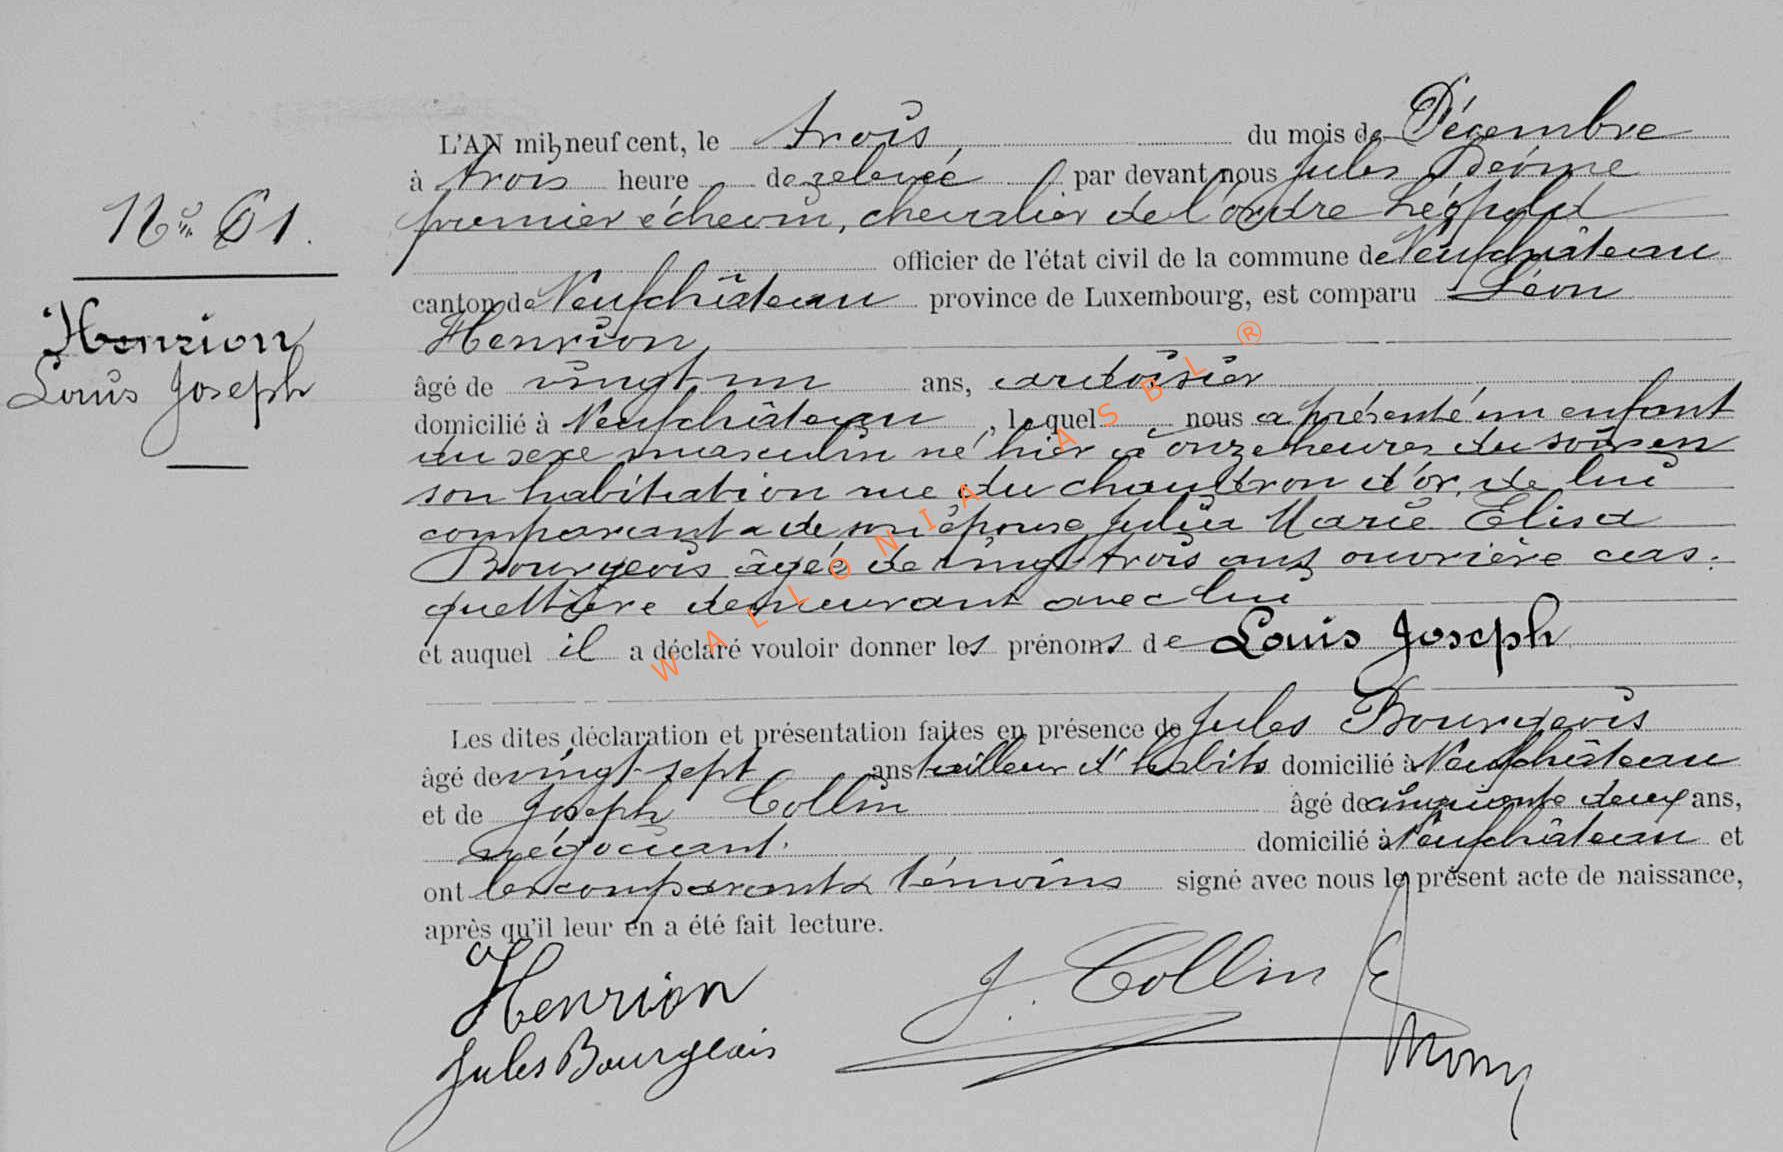 L'AN mil neuf cent, le trois, du mois de Décembre
à trois heure de relevée par devant nous Jules
premier échevin, chevalier de l'ordre Léopold
officier de l'état civil de la commune de Neufchâteau
canton de Neufchâteau province de Luxembourg, est comparu Léon
Henrion
âgé de vingt un ans, ardoisier
domicilié à Neufchâteau, lequel nous a présenté un enfant
du sexe masculin né hier à onze heures du soir en
son habitation rue du chaudron d'or, de lui
comparant & de son épouse Julia Marie Elisa
Bourgeois âgée de vingt trois ans ouvrière cas-
quettière demeurant avec lui
et auquel il a déclaré vouloir donner les prénoms de Louis Joseph
Les dites déclaration et présentation faites en présence de Jules Bourgeois
âgé de vingt sept ans tailleur d'habits domicilié à Neufchâteau
et de Joseph Collin âgé de cinquante deux ans,
négociant. domicilié à Neufchâteau et
ont les comparant & témoins signé avec nous le présent acte de naissance,
après qu'il leur en a été fait lecture.
No 61.
Henrion
Louis Joseph
Henrion
J. Collin
Jules Bourgeois
WALLONIA ASBL ®